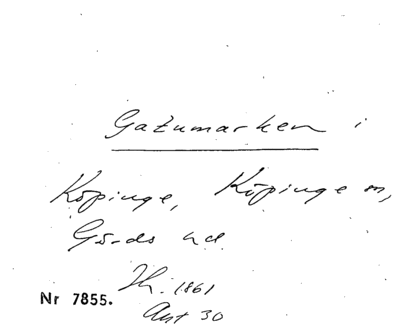 Gatumarken i
Köpinge, Köpinge sn,
Gärds hd
Jh. 1861
Akt 30
Nr 7855.